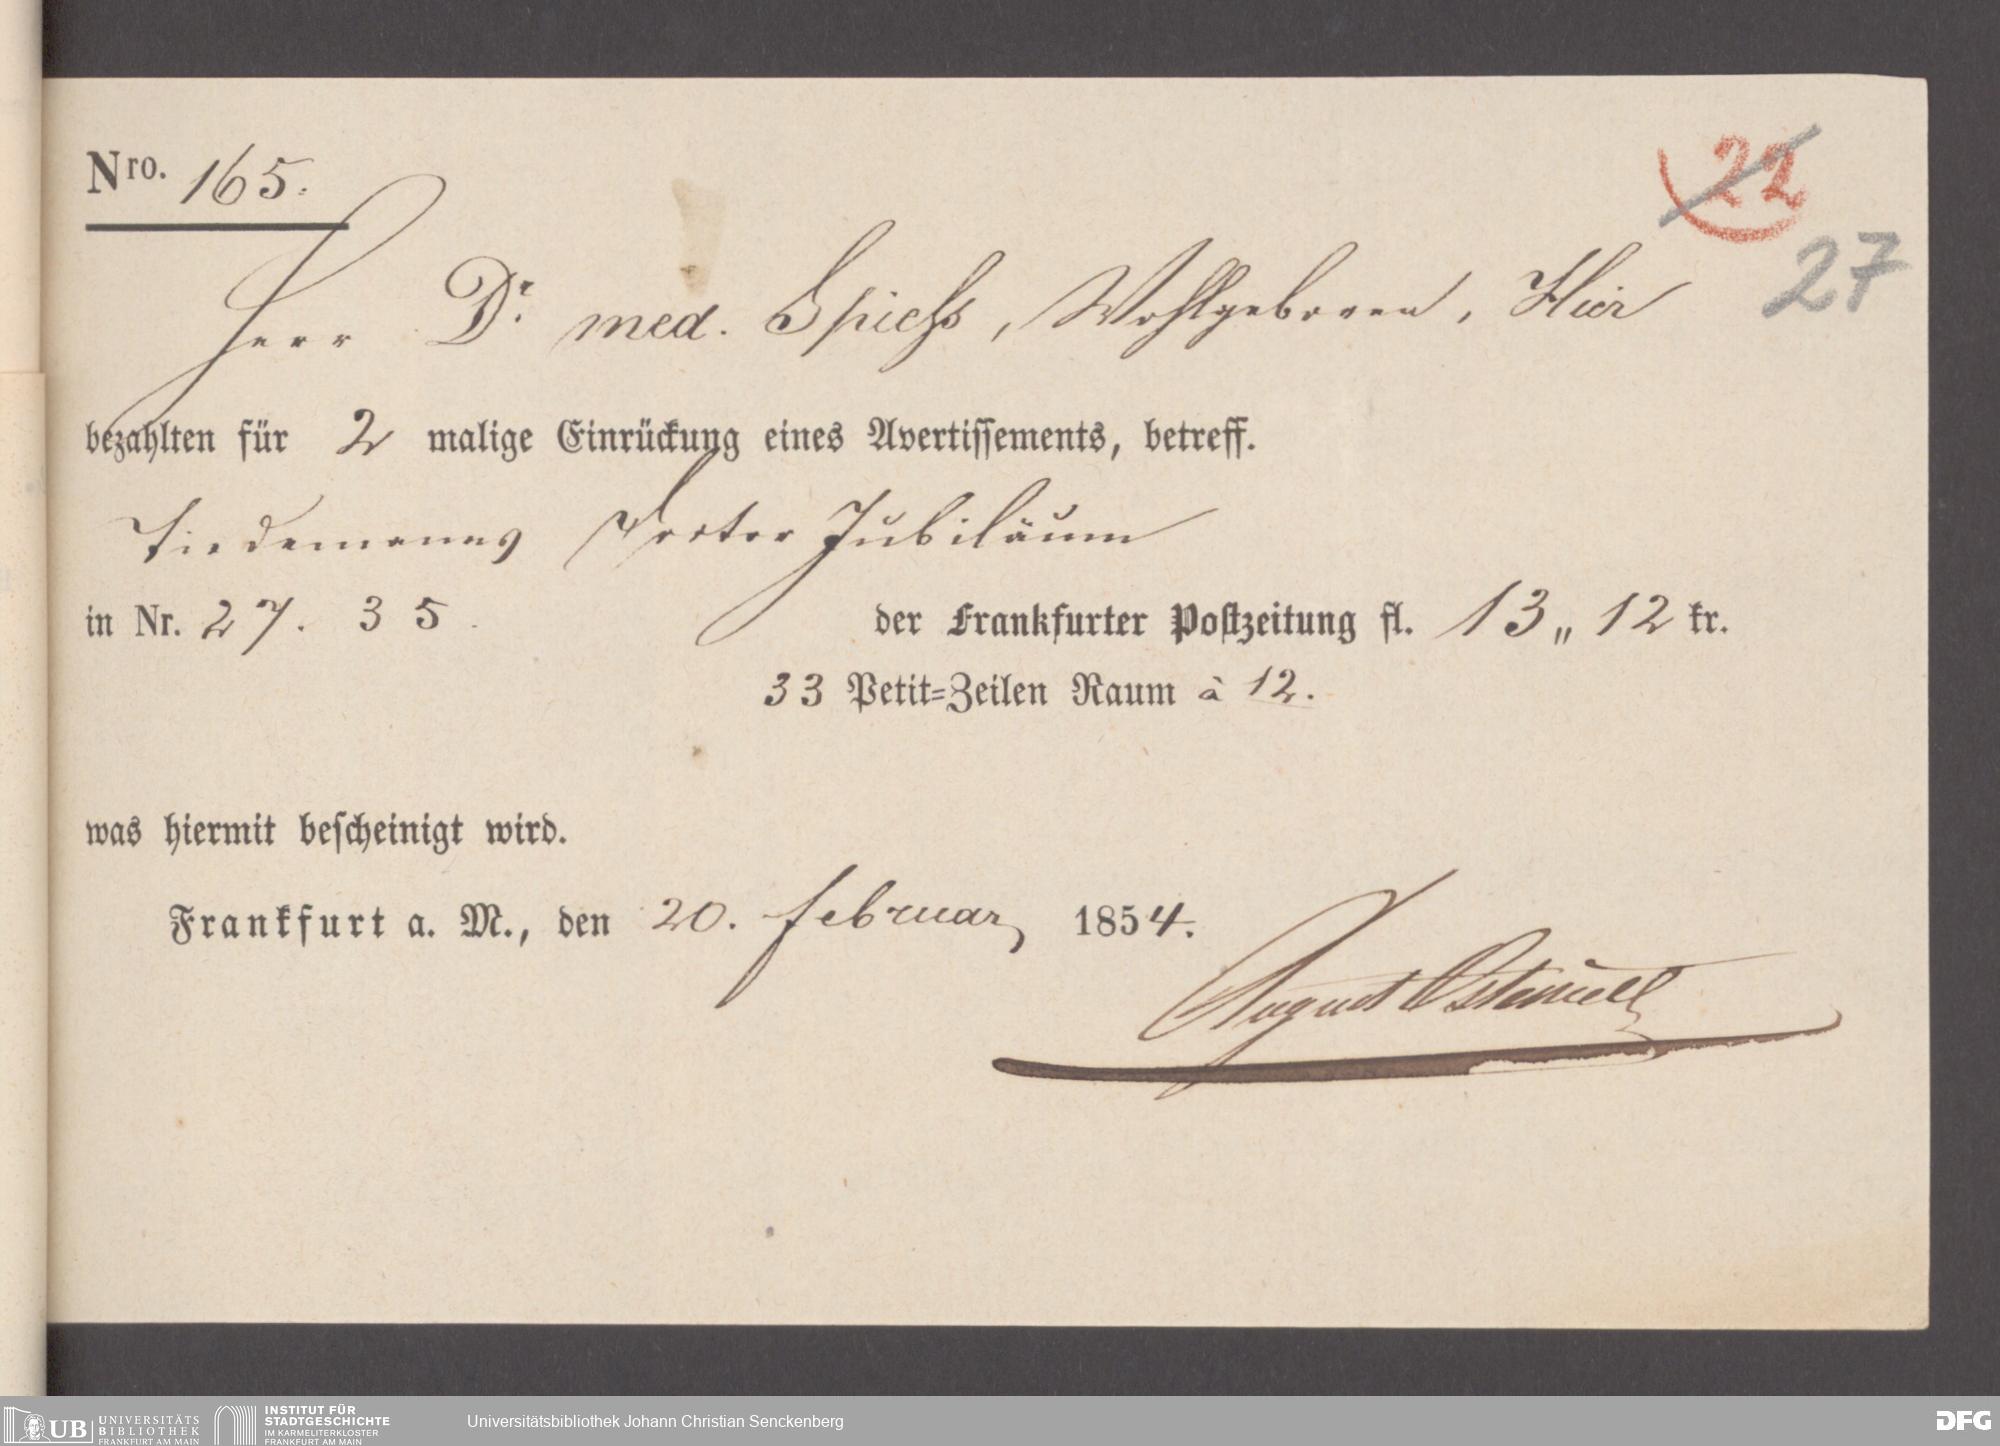 Nro. 165.
22
27
Herr Dr. med. Spiess, Wohlgeboren, Hier
bezahlten für 2 malige Einrückung eines Avertissements, betreff.
Tiedemanns Doctor Jubiläum
in Nr. 27. 35. der Frankfurter Postzeitung fl. 13 „ 12 kr.
33 Petit-Zeilen Raum à 12.
was hiermit bescheinigt wird.
Frankfurt a. M., den 20. Februar 1854.
August
UB UNIVERSITÄTS
BIBLIOTHEK
FRANKFURT AM MAIN
INSTITUT FÜR
STADTGESCHICHTE
IM KARMELITERKLOSTER
FRANKFURT AM MAIN
Universitätsbibliothek Johann Christian Senckenberg
DFG